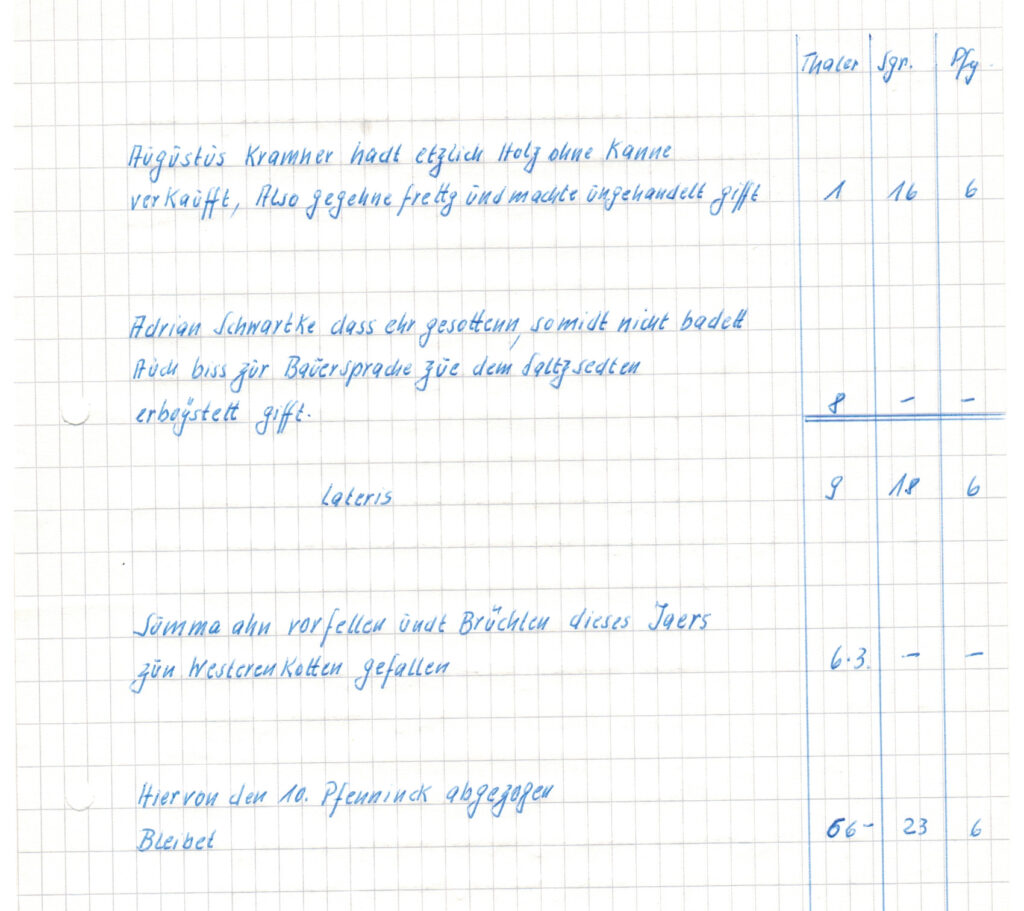 Thaler Sgr. Pfg.
Augustus Kramner hadt etzlich Holz ohne Kanne
verkaufft, Also gegehne frettg und machte ungehandelt gifft 1 16 6
Adrian Schwartke dass ehr gesottenn, somidt nicht badett
Auch biss zur Bauersprache zue dem Saltzsedten
erbaÿstett gifft. 8 - -
Lateris 9 18 6
Summa ahn vorfellen undt Brüchten dieses Jaers
zun Westerenkotten gefallen 6.3. - -
Hiervon den 10. Pfenninck abgezogen
Bleibet 56- 23 6